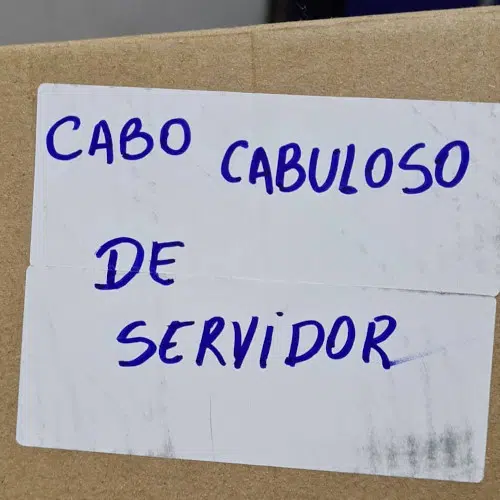 CABO CABULOSO
DE
SERViDOR